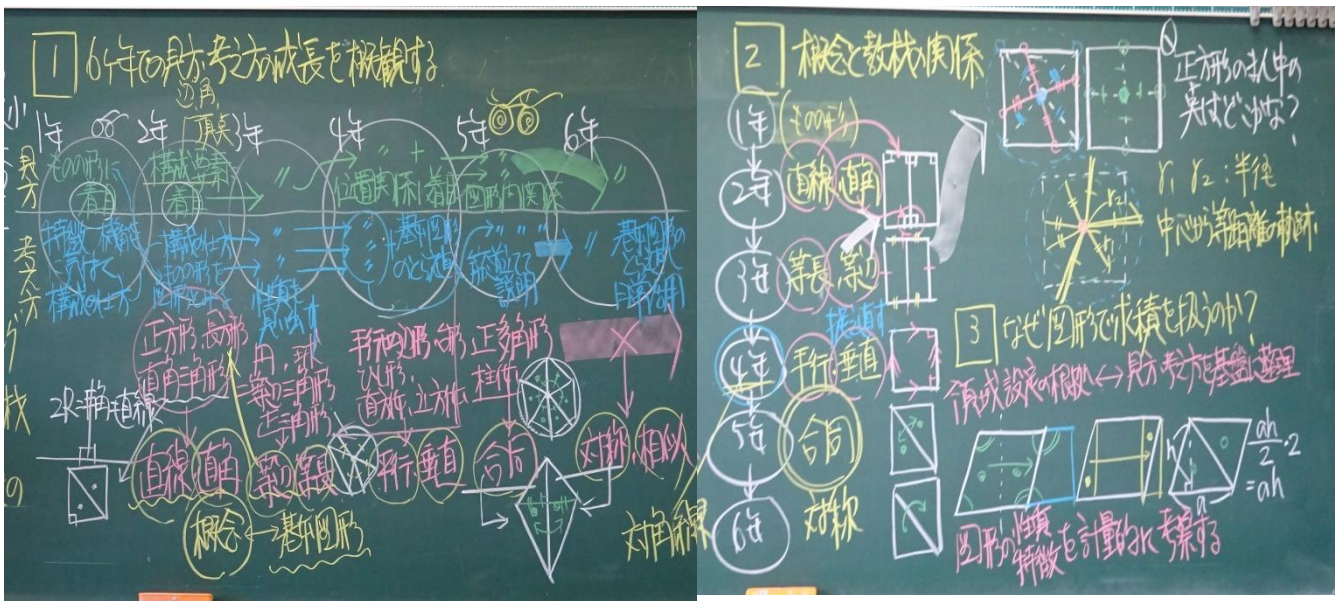 1 6年での見方・考え方の成長を概観する
辺、角、
頂点
1年 2年 3年 4年 5年 6年
見方
ものの形に
着目
構成要素
着目
〃
〃 +
位置関係に着目
図形内関係
〃
考え方
特徴
構成の仕方
構成の仕方
ものの形を
〃
性質を
見いだす
〃
基本図形
筋道立てて
説明
〃
基本図形の
正方形・長方形
直角三角形
円、球
二等辺三角形
正三角形
平行四辺形・台形
ひし形、
直方体、立方体
正多角形
柱体
×
2R=平角=直線
直線 直角
等辺 等長
平行 垂直
合同
対称 相似
概念 ↔ 基本図形
2 概念と教材の関係
1年 (ものの形)
2年 直線 直角
3年 等長 等辺
捉え直す
4年 平行・垂直
5年 合同
6年 対称
正方形のまん中の
点はどこかな?
r₁ r₂:半径
中心から等距離の軌跡
3 なぜ図形で求積を扱うのか?
領域設定の根拠 ↔ 見方・考え方を基盤に整理
h
a
ah/2・2
=ah
図形の性質
特徴を計量的に考察する